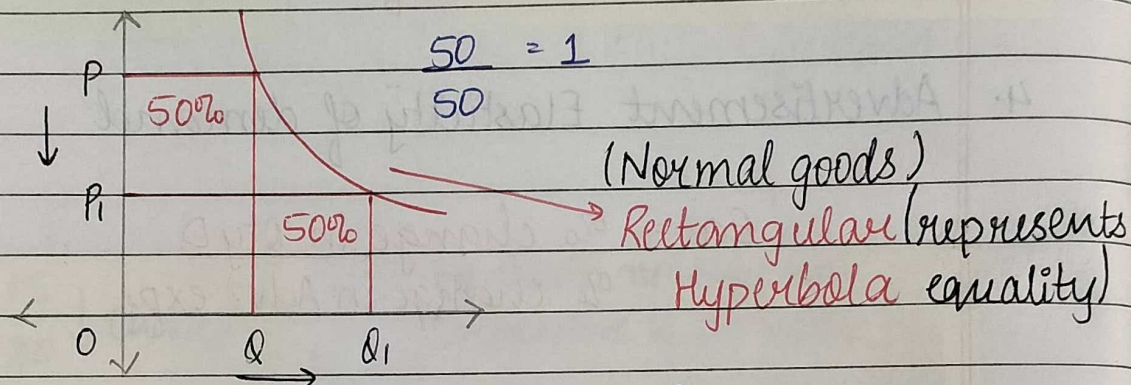 50 = 1
50
P
50%
(Normal goods)
P1
50%
Rectangular (represents
Hyperbola equality)
O
Q
Q1